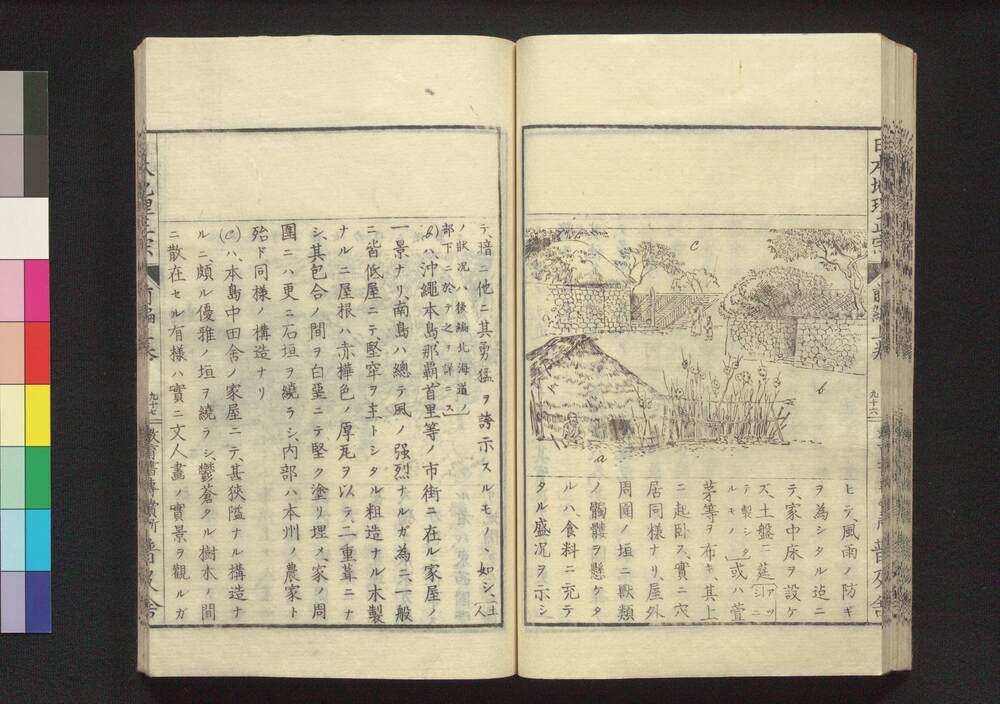 日本地理正宗
前編
九十六
c
b
a
ヒテ、風雨ノ防ギ
ヲ為シタル迠ニ
テ、家中床ヲ設ケ
ズ、土盤ニ莚(アツシニ
テ製シタ
ルモノ)或ハ萱
茅等ヲ布キ、其上
ニ起臥ス、實ニ穴
居同様ナリ、屋外
周圍ノ垣ニ獸類
ノ髑髏ヲ懸ケタ
ルハ、食料ニ充テ
タル盛况ヲ示シ
テ、暗ニ他ニ其勇猛ヲ誇示スルモノヽ如シ、(土人
ノ狀况ハ後編北海道ノ
部下ニ於テ之ヲ詳ニス)
(b)ハ、沖繩本島那覇、首里等ノ市街ニ在ル家屋ノ
一景ナリ、南島ハ總テ風ノ强烈ナルガ為ニ、一般
ニ皆低屋ニテ、堅牢ヲ主トシタル粗造ナル木製
ナルニ屋根ハ赤樺色ノ厚瓦ヲ以テ、二重葺ニナ
シ、其包合ノ間ヲ白堊ニテ堅ク塗リ埋メ、家ノ周
圍ニハ更ニ石垣ヲ繞ラシ、内部ハ本州ノ農家ト
殆ド同様ノ構造ナリ
(c)ハ、本島中田舎ノ家屋ニテ、甚狹隘ナル構造ナ
ルニ、頗ル優雅ノ垣ヲ繞ラシ、鬱蒼タル樹木ノ間
ニ散在セル有様ハ實ニ文人畫ノ實景ヲ觀ルガ
九十七